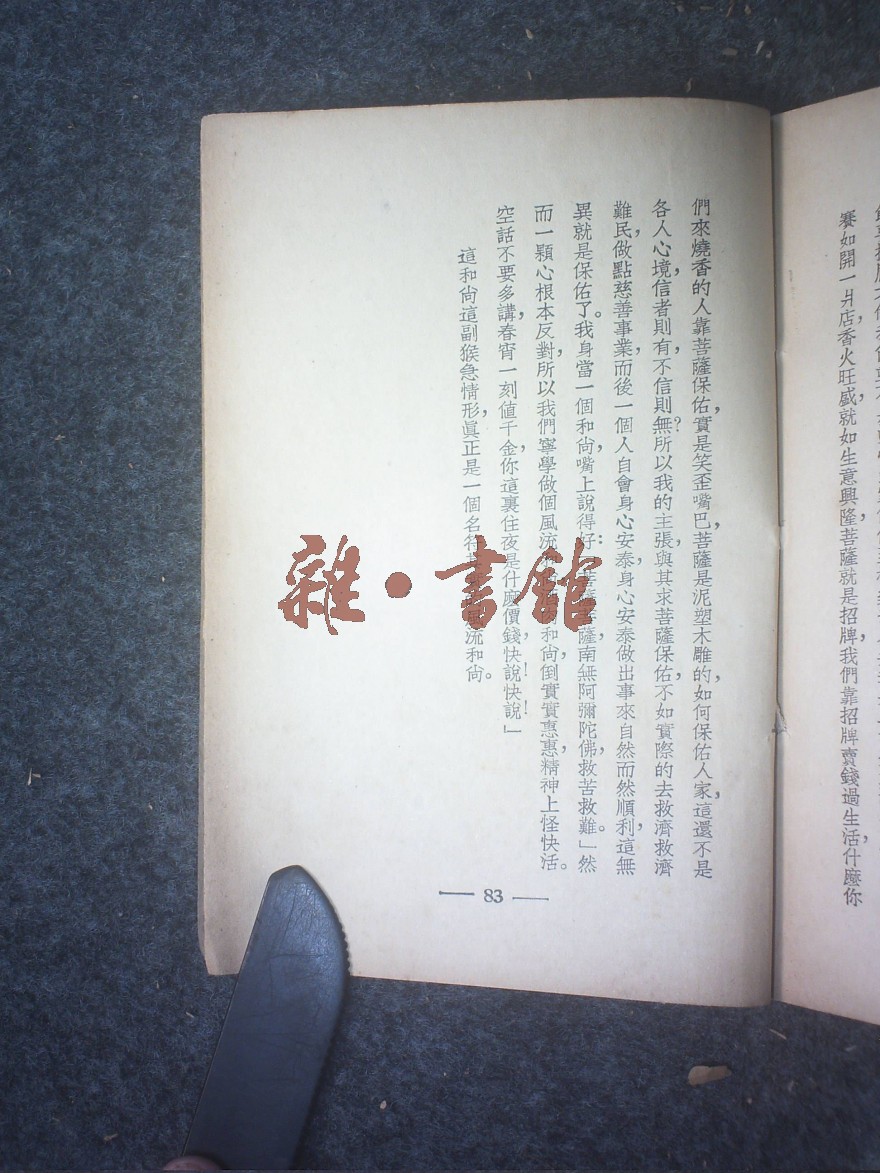 賽如開一爿店，香火旺盛，就如生意興隆，菩薩就是招牌，我們靠招牌賣錢過生活，什麼你
們來燒香的人靠菩薩保佑，實是笑歪嘴巴，菩薩是泥塑木雕的，如何保佑人家，這還不是
各人心境，信者則有，不信則無？所以我的主張，與其求菩薩保佑，不如實際的去救濟救濟
難民，做點慈善事業，而後一個人自會身心安泰，身心安泰做出事來自然而然順利，這無
異就是保佑了。我身當一個和尚，嘴上說得好：菩薩，南無阿彌陀佛，救苦救難。」然
而一顆心根本反對，所以我們寧學做個風流和尚，倒實實惠惠，精神上怪快活。
空話不要多講，春宵一刻値千金，你這裏住夜是什麼價錢，快說！快說！」
這和尚這副猴急情形，眞正是一個名符流和尚。
83
雜・書館